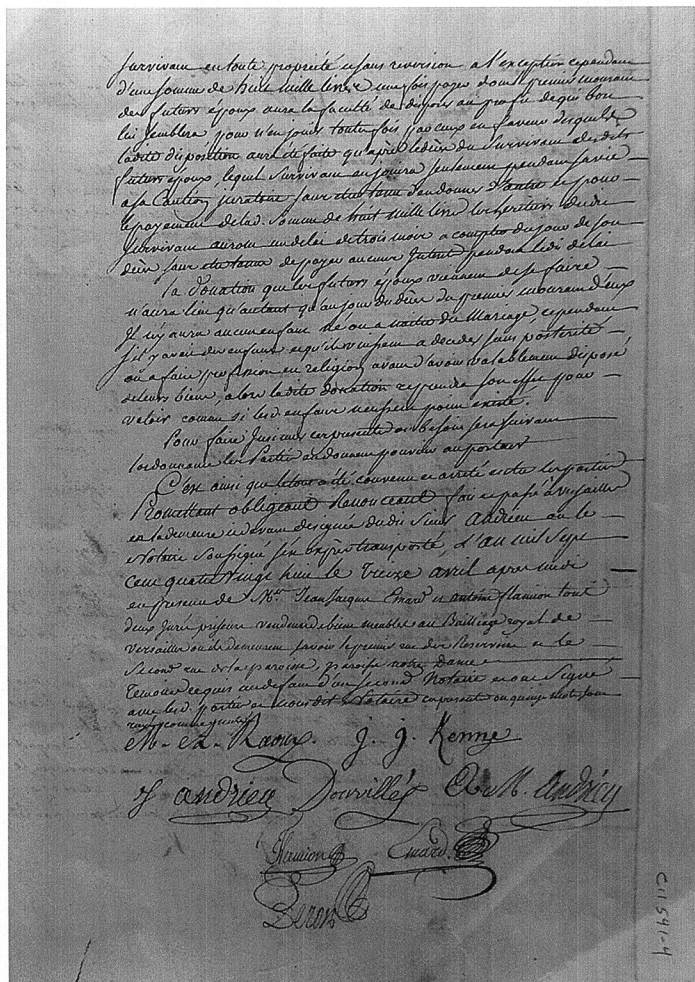 survivant en toute propriété et sans reversion a l'exception cependant
d'une somme de huit mille livres une fois payée dont le premier mourant
des futurs époux aura la faculté de disposer au profit de qui bon
lui semblera pour n'en jouir toutes fois par ceux en faveur desquels
ladite disposition aura été faite qu'après le décès du survivant desdits
futurs époux, lequel survivant en jouira seulement pendant sa vie
a sa Caution juratoire sans etre tenu d'en donner d'autre et pour
le payement de lad. somme de huit mille livres les heritiers dudit
survivant auront un delai de trois mois a compter du jour de son
décès sans etre tenus de payer aucuns Interets pendant ledit délai
la donation que les futurs époux viennent de se faire
n'aura lieu qu'autant qu'au jour du décès du premier mourant d'eux
Il n'y aura aucun enfant né ou a naitre du Mariage, cependant
s'il y avait des enfants et qu'ils vinssent a décéder sans posterité
ou a faire profession en religion avant d'avoir valablement disposé
de leurs biens, alors ladite donation reprendra son effet pour
valoir comme si lesd. enfans n'eussent point existé.
Pour faire Insinuer ces presentes ou besoin sera suivant
l'ordonnance les Parties en donnent pouvoir au porteur
C'est ainsi que le tout a été convenu et arrêté entre les parties
Promettant obligeant Renonceant fait et passé à Versailles
en la demeure ci devant designée dudit Sieur Andrieu ou le
Notaire soussigné s'est exprès transporté, L'an mil sept
cent quatre vingt huit le Treize avril apres midi
en presence de Mrs. Jean Jacques Emard et antoine flamion tous
deux Jurés priseurs vendeurs de biens meubles au Bailliage royal de
Versailles où ils demeurent savoir le premier rue des Reservoirs et le
second rue de la paroisse, paroisse notre Dame
Temoins requis au défaut d'un second Notaire et ont signé
avec lesd. parties et nous dit Notaire ces presentes ou quinze mots sont
rayés comme nuls
J. J. Kenne
andrieu Dourvillés andrieu
Emard